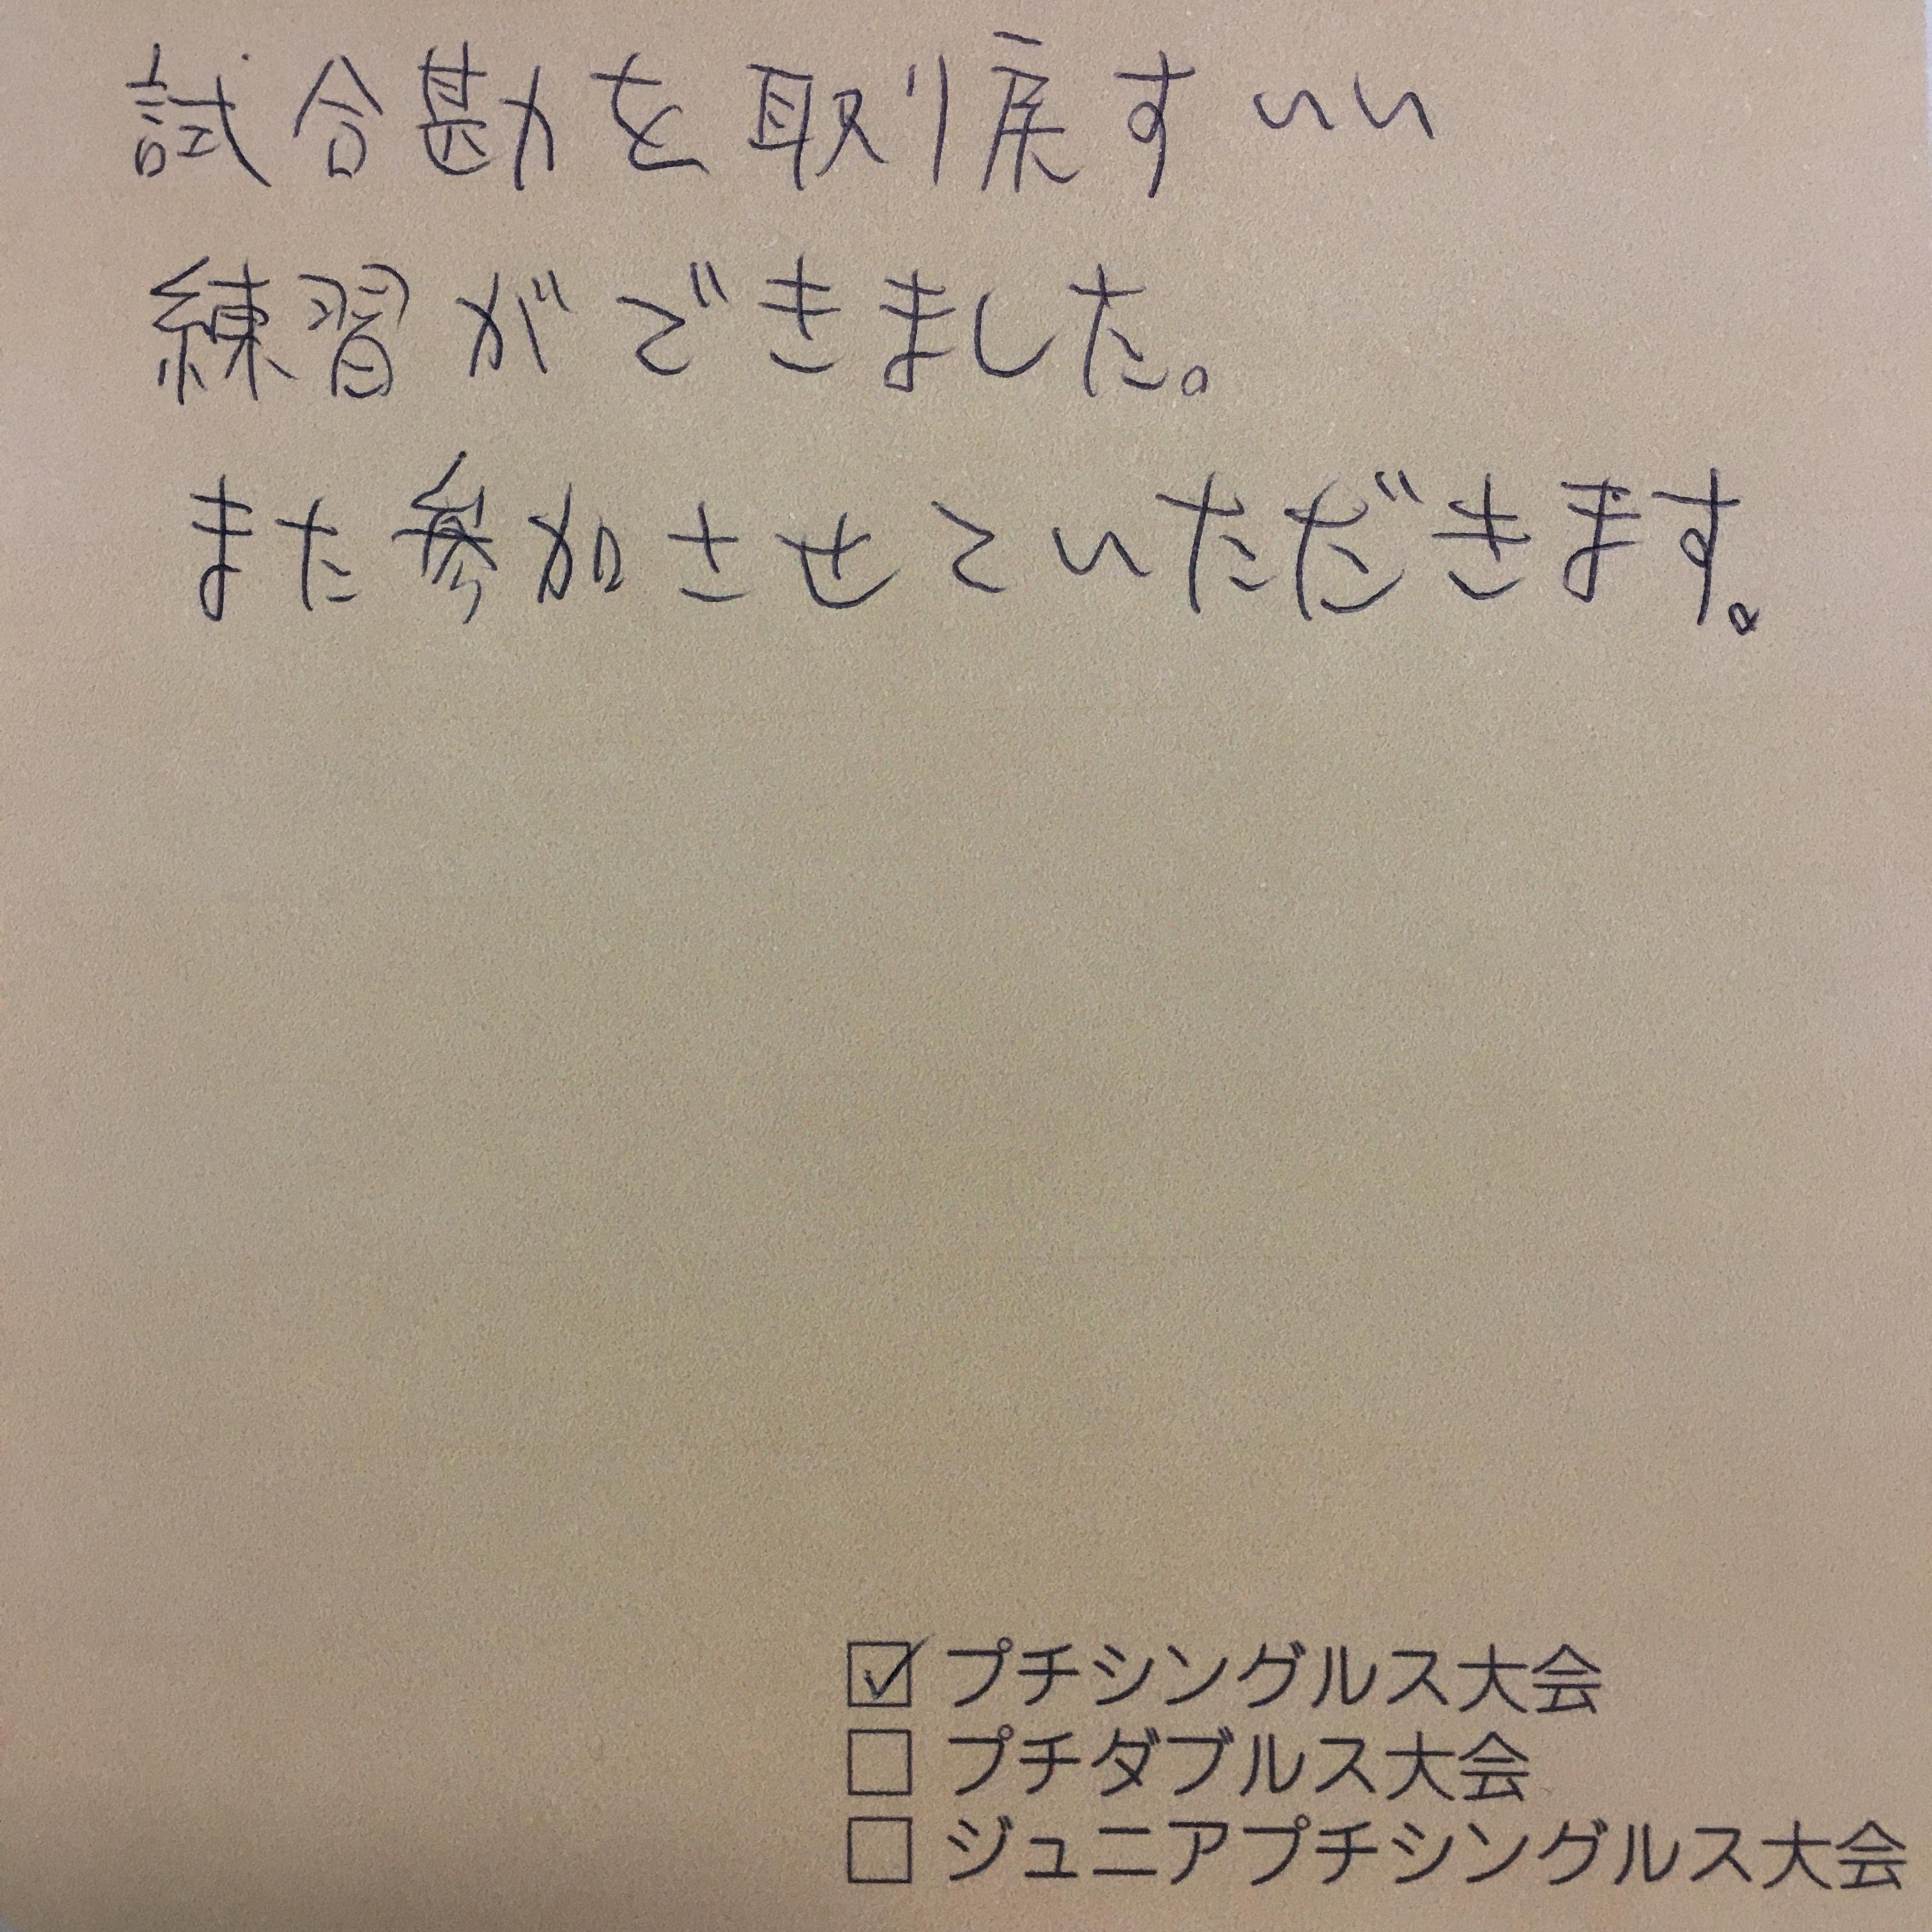 試合勘を取り戻すいい
練習ができました。
また参加させていただきます。
☑ プチシングルス大会
☐ プチダブルス大会
☐ ジュニアプチシングルス大会